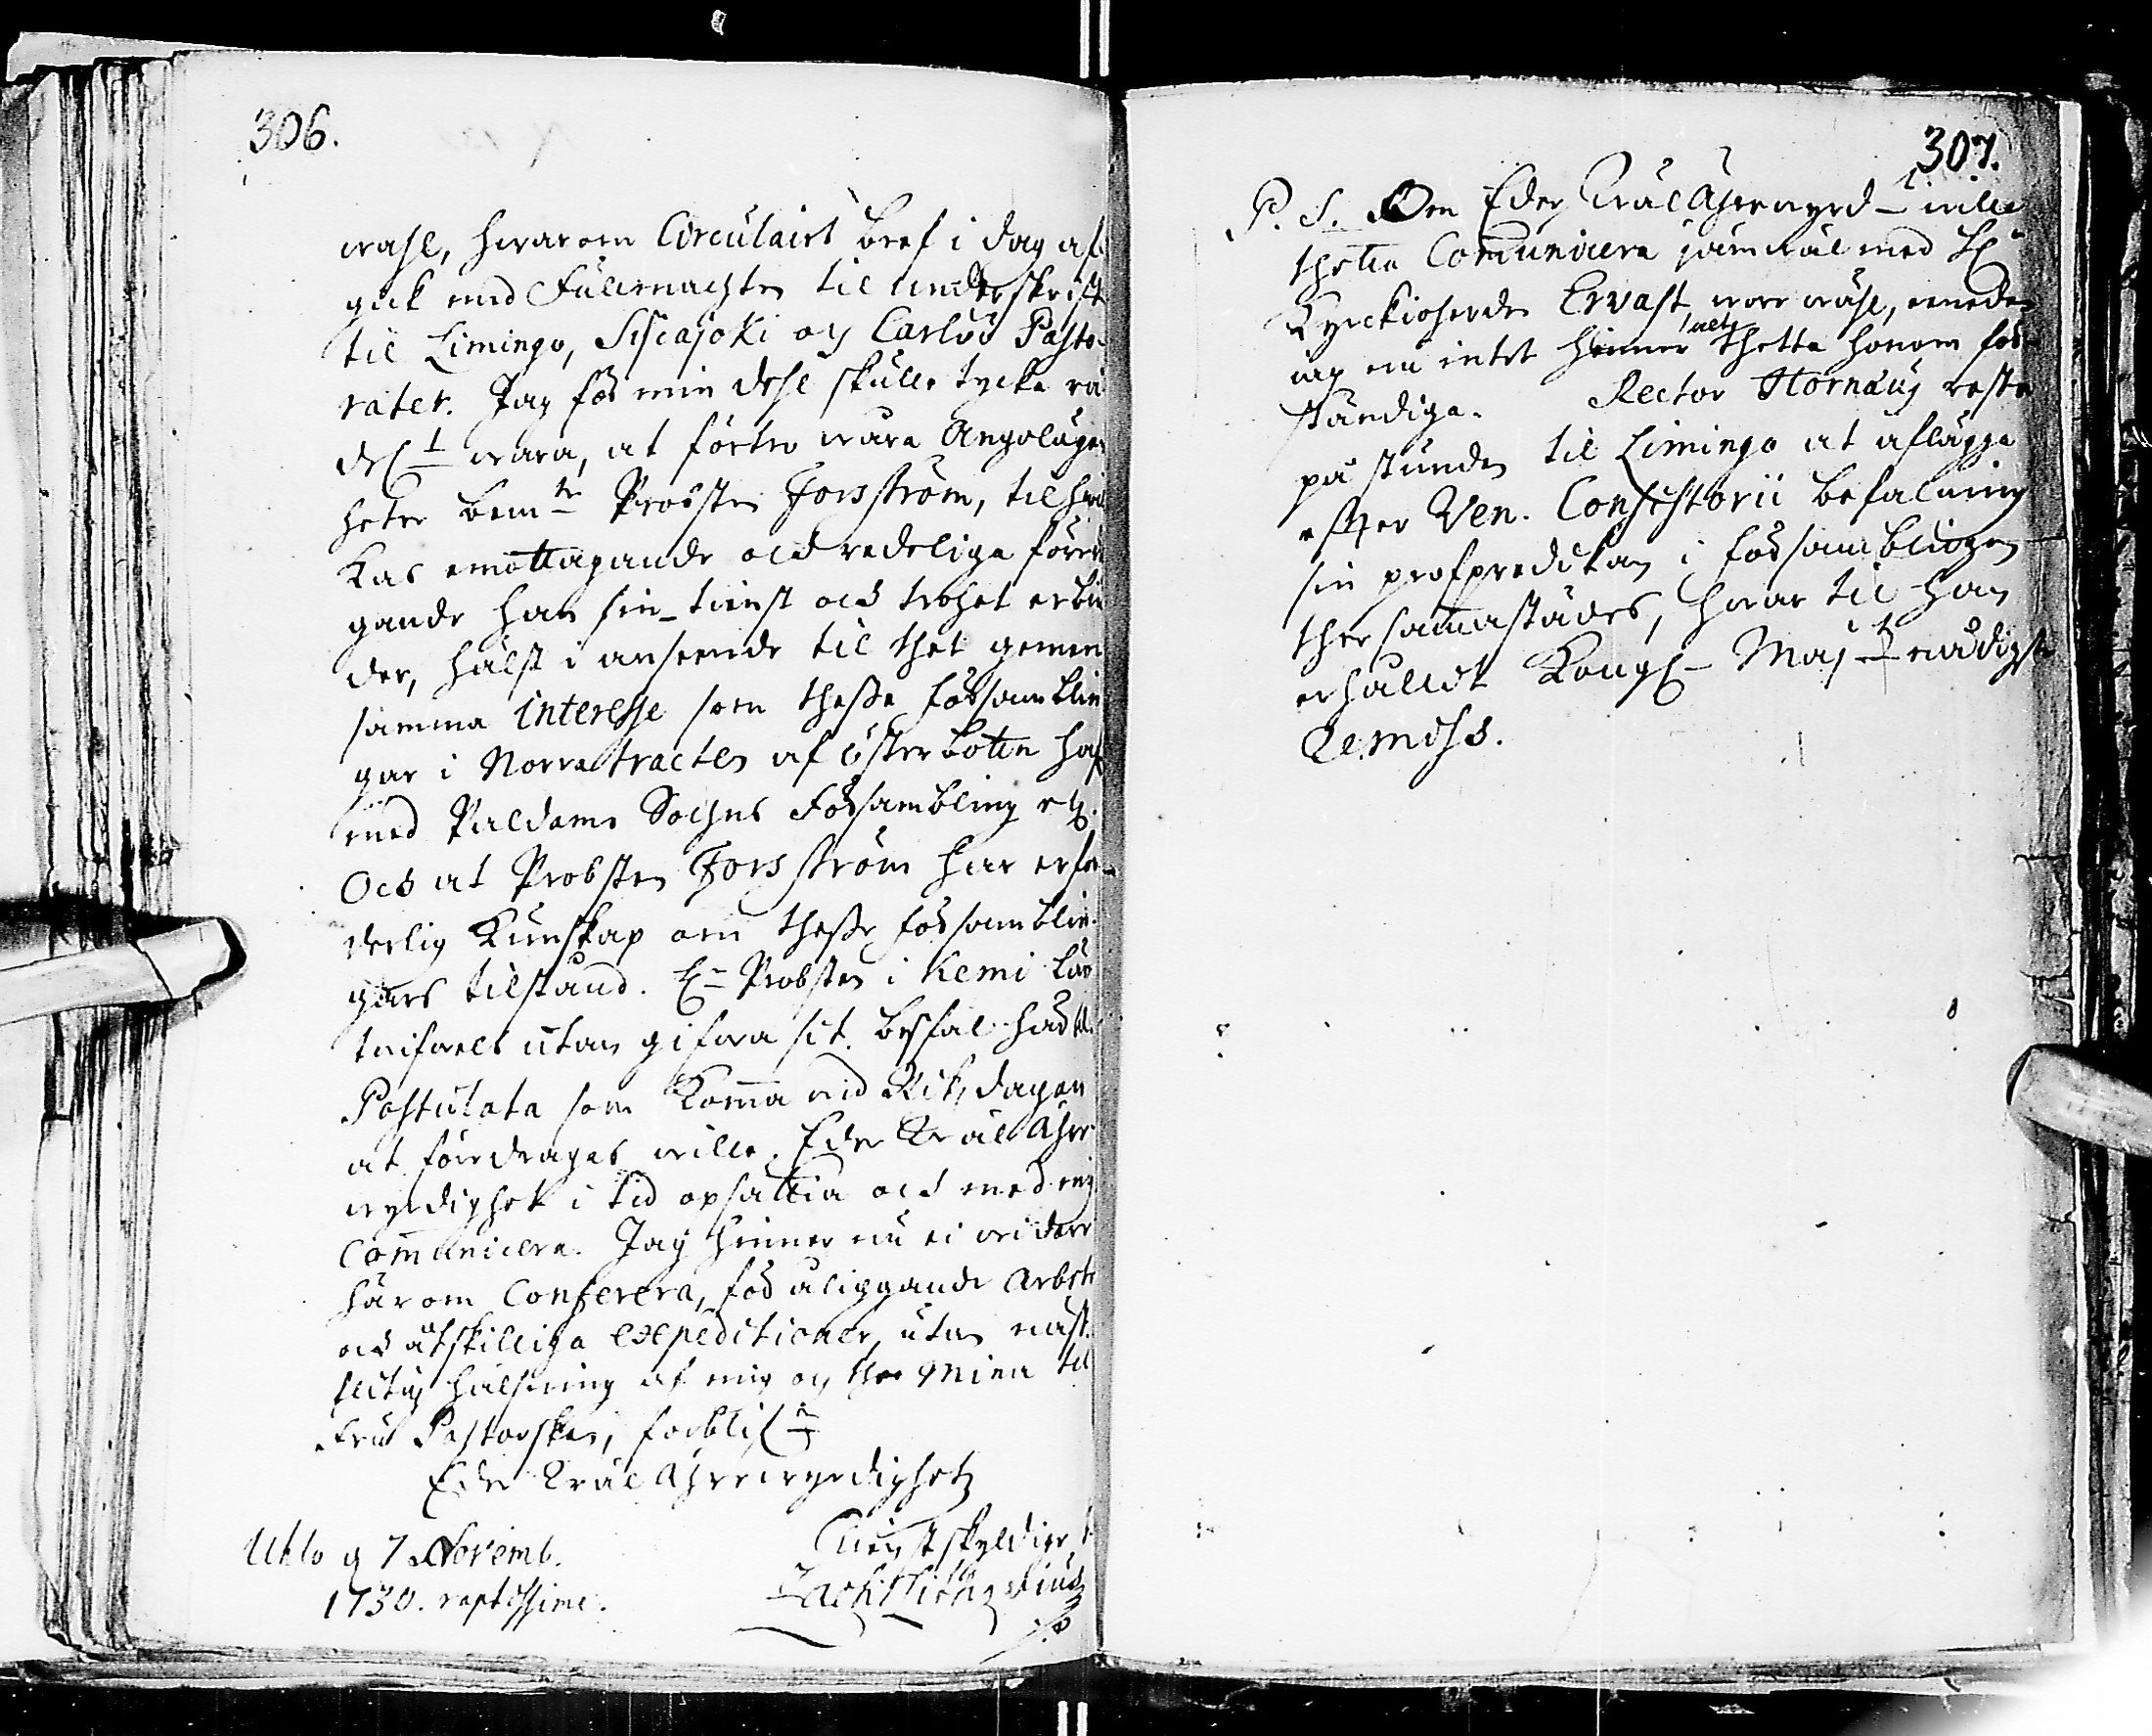 306.
wahl, hwarom Circulairt bref i dag af-
gick med Fullmachten til underskrift
til Limingo, Sijcajoki och Carlöö Pasto-
rater. Jag för min dehl skulle tycka rå
del:t wara, at förtro wåra Angeläge
heter bem:te Probsten Forsström, til hwil
kas emottagande och redeliga föred
gande han sin tienst och trohet erbiu
der, hälst i anseende til thet gemen
samma interesse som theße församblin
gar i Norra tracten af österbotten haf
med Paldamo Sochns Försambling etc.
Och at Probsten Forsström har erfor-
derlig Kunskap om theße församblin-
gars tilstånd. H:r Probsten i Kemi lär
twifwels utan gifwa sit bifal här til.
Postulata som komma wid Riksdagen
at föredragas wille Eder WälAhre
wyrdighet i tid opsättia och med mig
communicera. Jag hinner nu ei widare
här om Conferera, för åliggande Arbete
och åtskilliga expeditioner, utan näst
flitig hälsning af mig och the mina til
Fru Pastorskan, förblif:r
Eder WälAhrewyrdighetz
Uhlo d 7 Novemb.
1730. raptissime.
Tienstskyldige
307.
P. S. Om Eder WälAhrewyrd:t wille
thetta Communicera jämwäl med H:r
Kyrckioherden Ervast, wore wähl, emedan
jag nu intet hinner wel thetta honom för-
ständiga. Rector Hornæus reste
på stunden til Limingo at aflägga
effter Ven. Consistorii befalning
sin profpredikan i församblingen
ther sammastädes, hwar til han
erhållit Kongl. Maj:tz nådigste
Remiss.